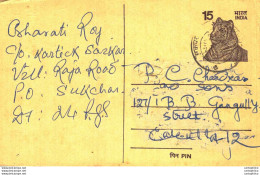 Bharati Roy
C/o. Kartick Sarkar
Vill. Raja Road
P.O. Sukchar
Dt: 24 Pgs
15
भारत
INDIA
B. C. Chandra
and Sons
127/1 B. B. Ganguly
Street.
Calcutta-12
पिन PIN